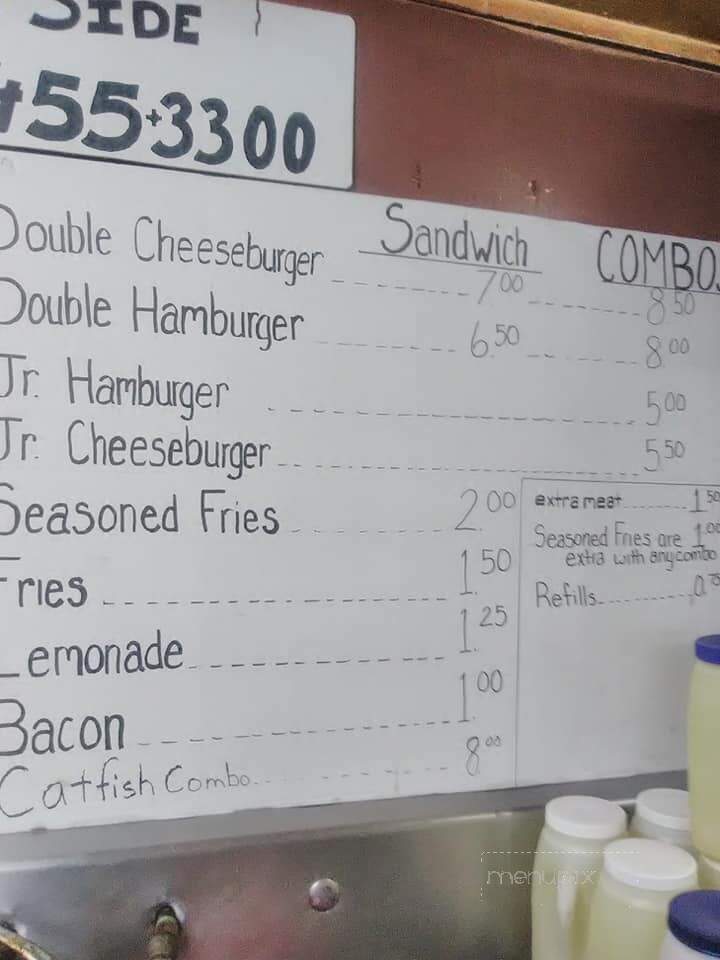 SIDE
455-3300
Sandwich COMBO
Double Cheeseburger 7.00 8.50
Double Hamburger 6.50 8.00
Jr. Hamburger 5.00
Jr. Cheeseburger 5.50
Seasoned Fries 2.00
Fries 1.50
Lemonade 1.25
Bacon 1.00
Catfish Combo 8.00
extra meat 1.50
Seasoned Fries are 1.00
extra with any combo
Refills
menupix